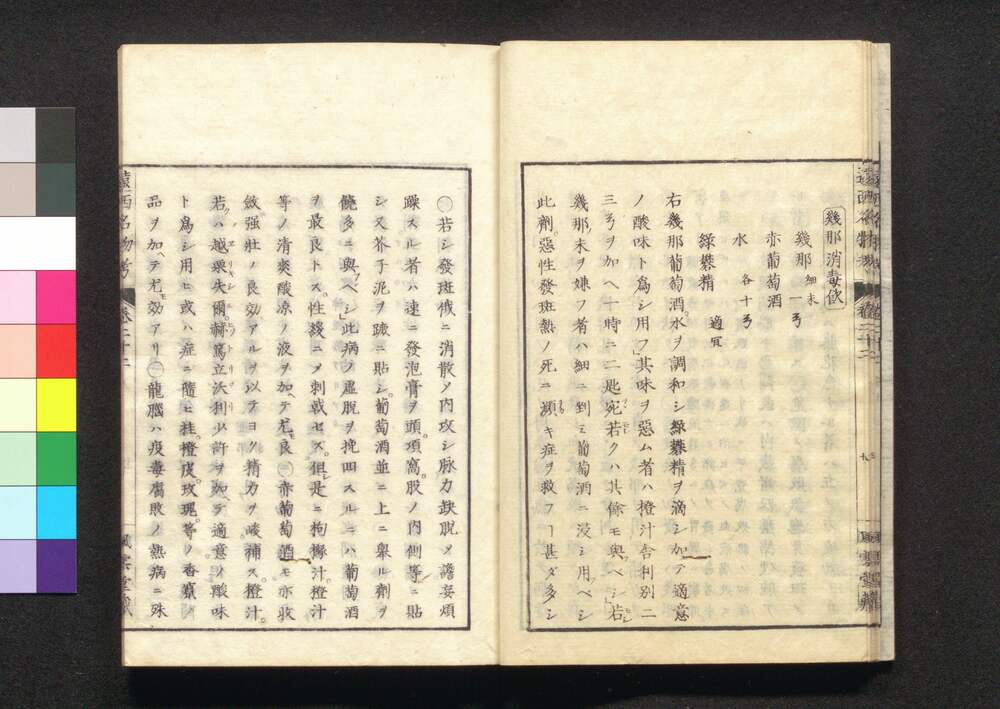 幾那消毒飲
幾那 細末 一ヲ
赤葡萄酒
水 各十ヲ
綠礬精 適宜
右幾那葡萄酒水ヲ調和シ綠礬精ヲ滴シ加テ適意
ノ酸味ト爲シ用フ其味ヲ惡ム者ハ橙汁舎利別二
三ヲヲ加ヘ一時ニ二匙宛若クハ其餘モ與ベシ若
幾那末ヲ嫌フ者ハ細ニ剉ミ葡萄酒ニ浸シ用ベシ
此劑惡性發斑熱ノ死ニ瀕キ症ヲ救フヿ甚ダ多シ
遠西名物考 卷二十二
風雲堂藏
若シ發斑俄ニ消散メ内攻シ脉力缺脱メ譫妄煩
躁スル者ハ速ニ發泡膏ヲ頭項窩股ノ内側等ニ貼
シ又芥子泥ヲ蹠ニ貼シ葡萄酒並ニ上ニ舉ル劑ヲ
饒多ニ與ベシ此病ノ虚脱ヲ挽回スルニハ葡萄酒
ヲ最良トス性緩ニメ刺戟セス但是ニ枸櫞汁橙汁
等ノ清爽酸凉ノ液ヲ加テ尤良 赤葡萄酒モ亦收
斂强壯ノ良效アルヲ以テヨク精力ヲ峻補ス橙汁
若ハ越栗失爾 篤立沃利少許ヲ加テ適意ノ酸味
ト爲シ用ヒ或ハ症ニ隨ヒ桂橙皮玫瑰等ノ香竄
品ヲ加ヘテ尤效アリ 龍腦ハ疫毒腐敗ノ熱病ニ殊
遠西名物考 卷二十二
風雲堂藏